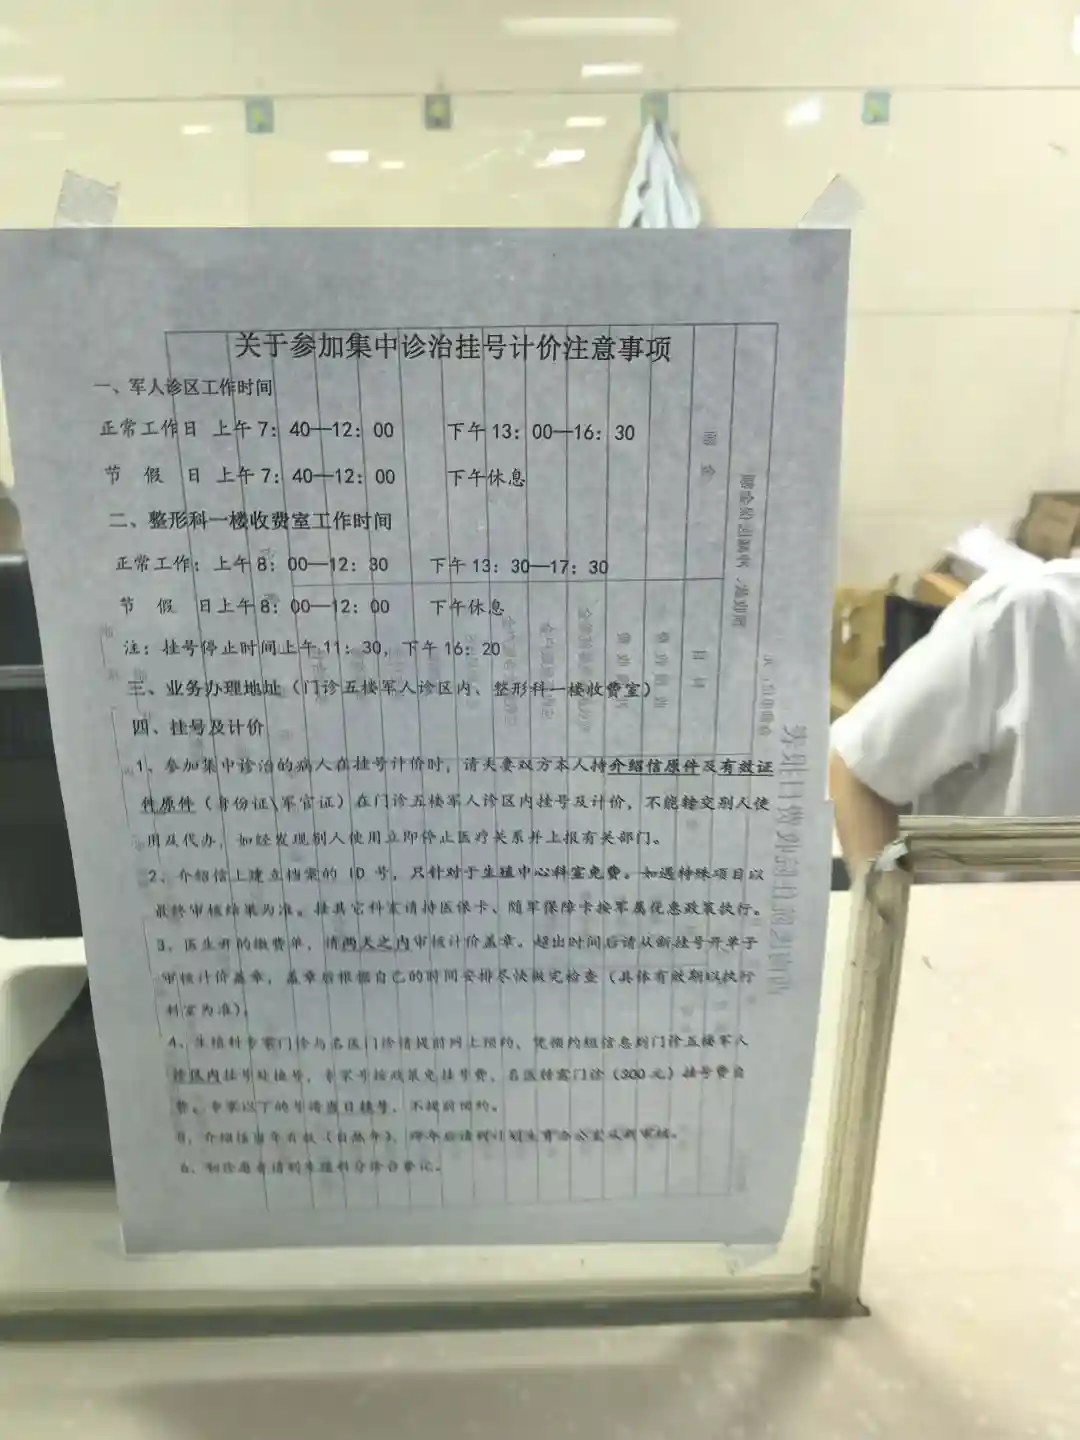 关于参加集中诊治挂号计价注意事项
一、军人诊区工作时间
正常工作日 上午7：40—12：00 下午13：00—16：30
节 假 日 上午7：40—12：00 下午休息
二、整形科一楼收费室工作时间
正常工作：上午8：00—12：30 下午13：30—17：30
节 假 日上午8：00—12：00 下午休息
注：挂号停止时间上午11：30，下午16：20
三、业务办理地址（门诊五楼军人诊区内、整形科一楼收费室）
四、挂号及计价
1、参加集中诊治的病人在挂号计价时，请夫妻双方本人持介绍信原件及有效证
件原件（身份证\军官证）在门诊五楼军人诊区内挂号及计价，不能转交别人使
用及代办，如经发现别人使用立即停止医疗关系并上报有关部门。
2、介绍信上建立档案的 ID 号，只针对于生殖中心科室免费。如遇特殊项目以
最终审核结果为准。挂其它科室请持医保卡、随军保障卡按军属优惠政策执行。
3、医生开的缴费单，请两天之内审核计价盖章。超出时间后请从新挂号开单子
审核计价盖章，盖章后根据自己的时间安排尽快做完检查（具体有效期以执行
科室为准）。
4、生殖科专家门诊与名医门诊请提前网上预约，凭预约短信息到门诊五楼军人
诊区内挂号处挂号，专家号按政策免挂号费，名医特需门诊（300元）挂号费自
费。专家以下的号请当日挂号，不提前预约。
5、介绍信当年有效（自然年），跨年后请到计划生育办公室从新审核。
6、初诊患者请到生殖科分诊台登记。